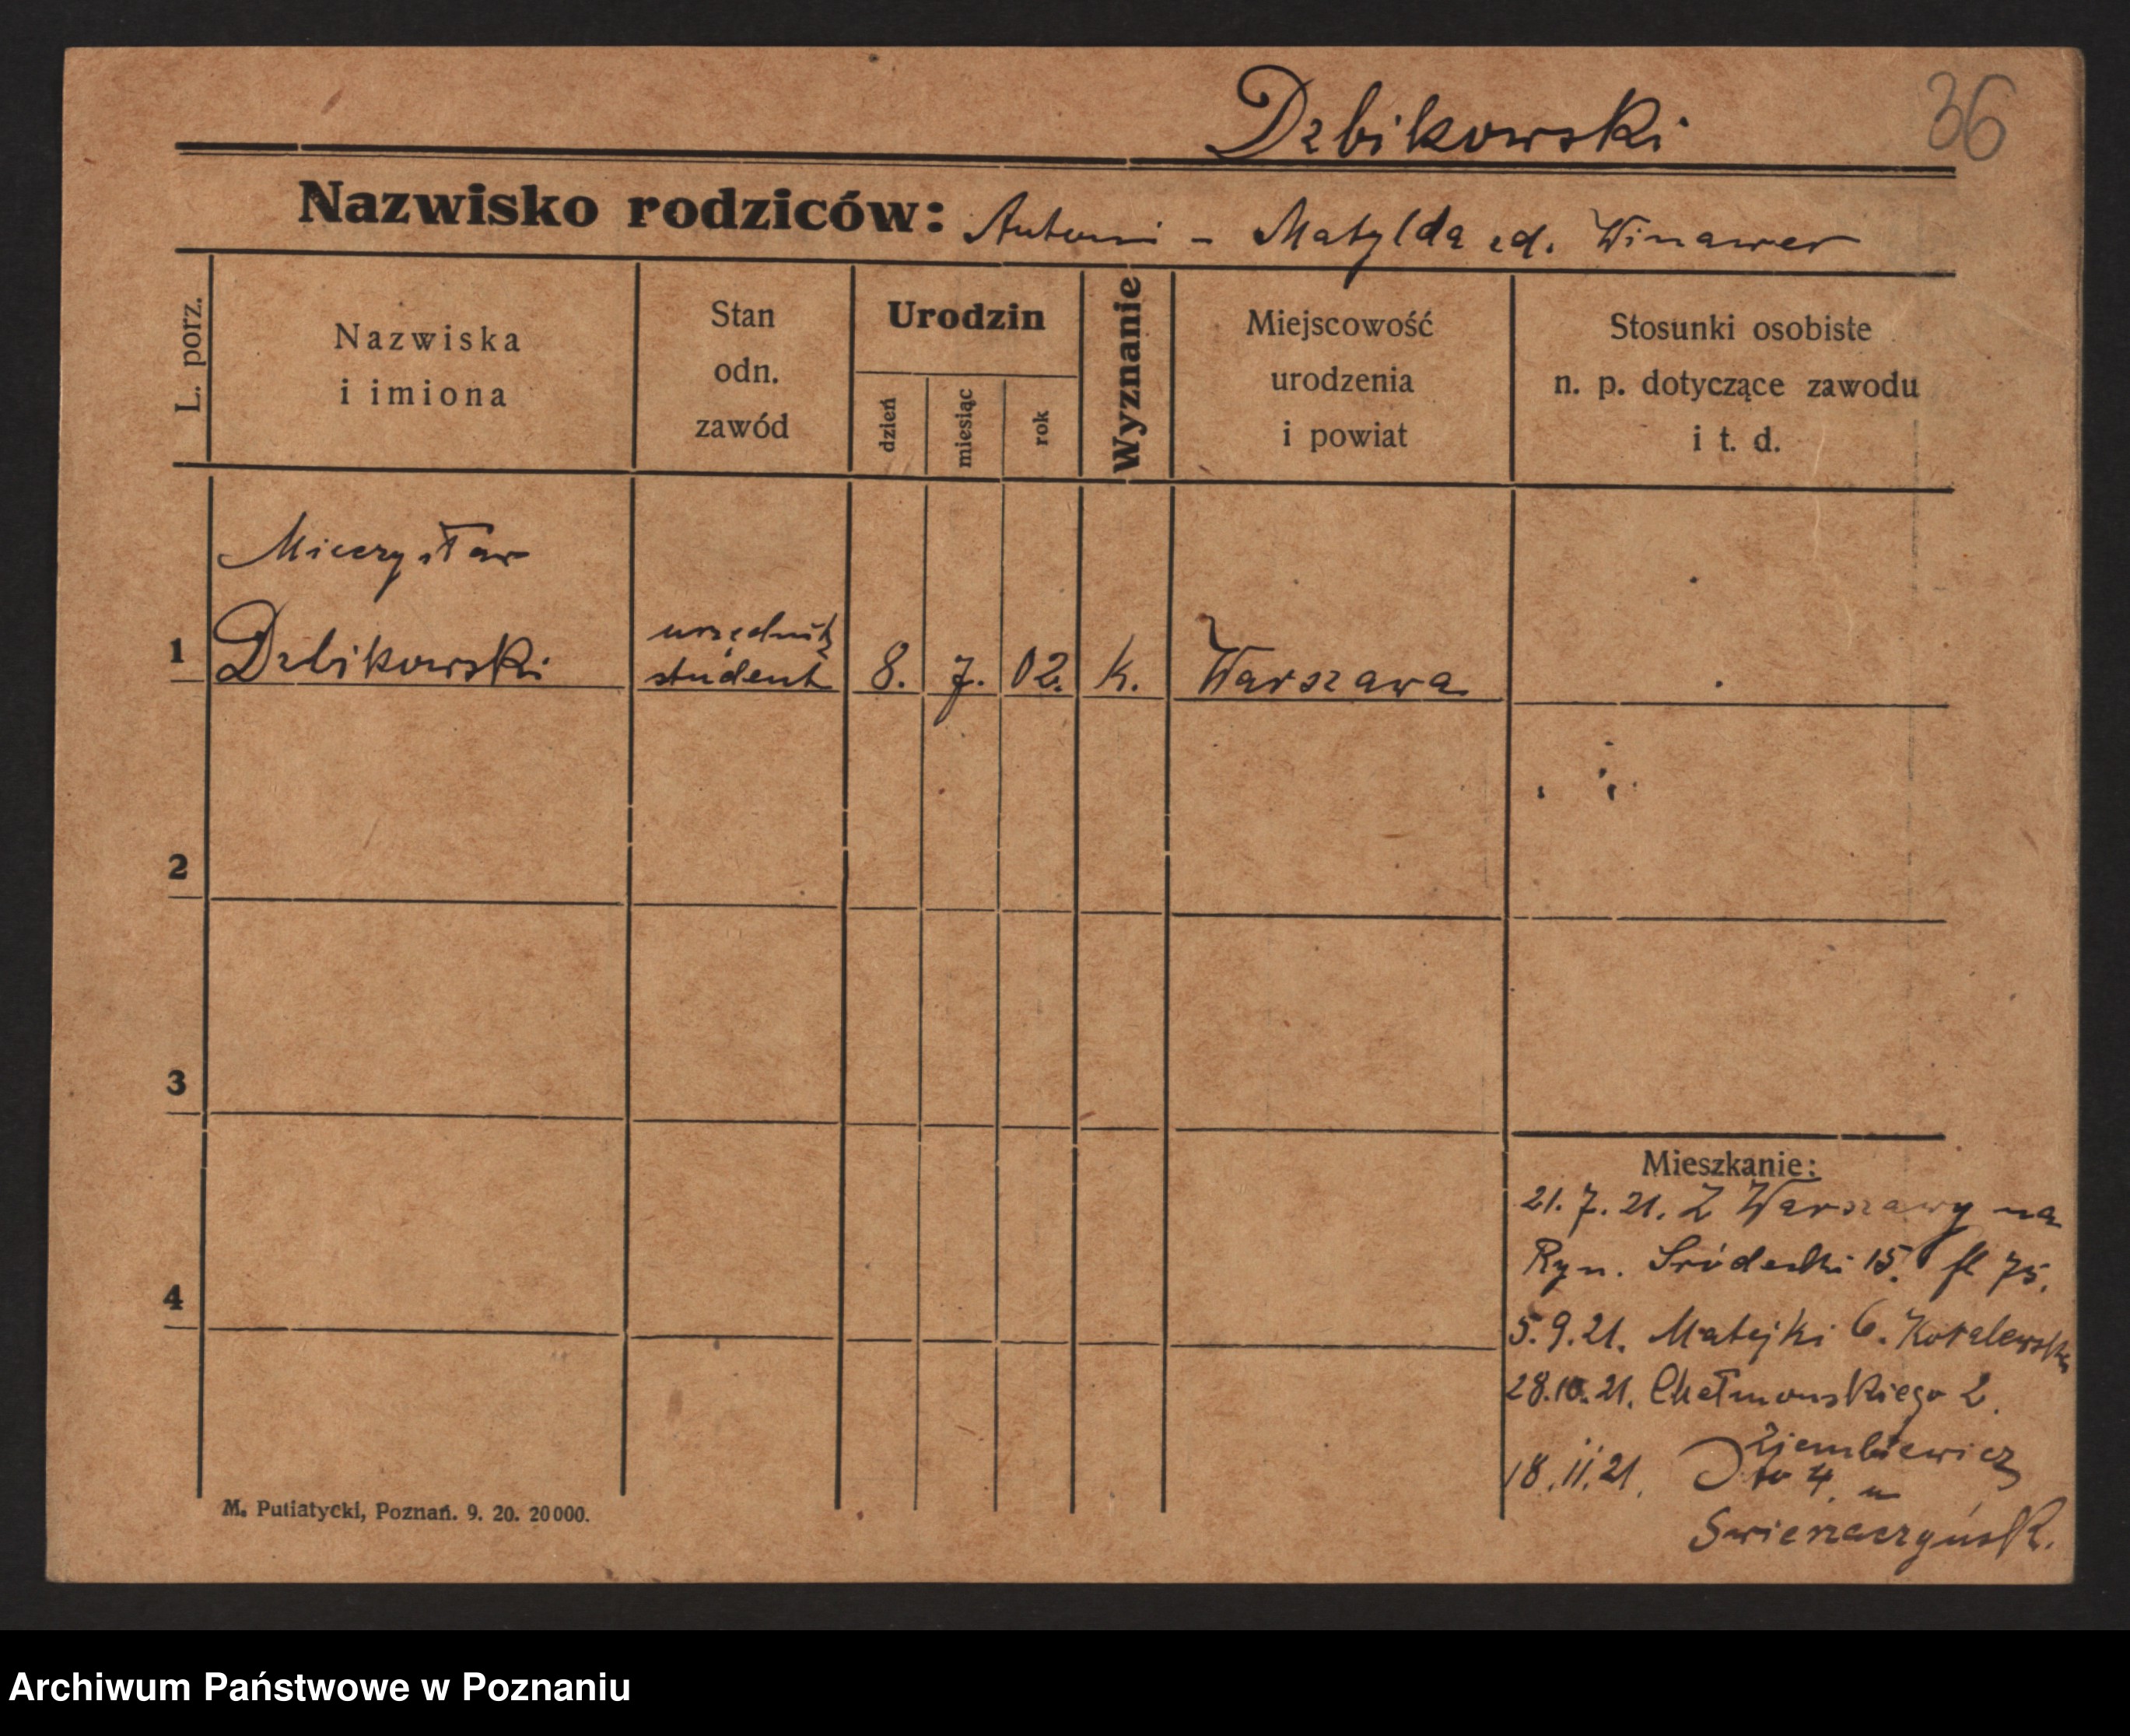 Dzbikowski
36
Nazwisko rodziców: Antoni - Matylda zd. Winawer
L. porz.
Nazwiska
i imiona
Stan
odn.
zawód
Urodzin
dzień
miesiąc
rok
Wyznanie
Miejscowość
urodzenia
i powiat
Stosunki osobiste
n. p. dotyczące zawodu
i t. d.
Mieczysław
1 Dzbikowski
urzędnik
student
8. 7. 02. k. Warszawa
2
3
4
Mieszkanie:
21. 7. 21. Z Warszawy na
Ryn. Śródecki 15. 75.
5. 9. 21. Matejki 6.
28.10.21. Chełmońskiego 2.
18.11.21. 4. u
M. Putiatycki, Poznań. 9. 20. 20000.
Archiwum Państwowe w Poznaniu